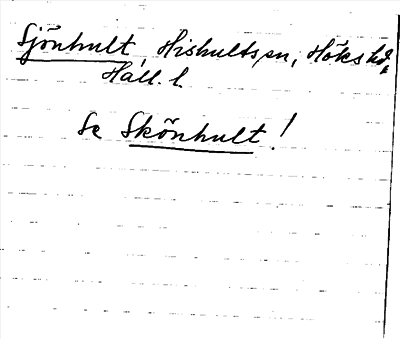 Sjönhult, Hishults sn, Höks hd,
Hall. l.
Se Skönhult!